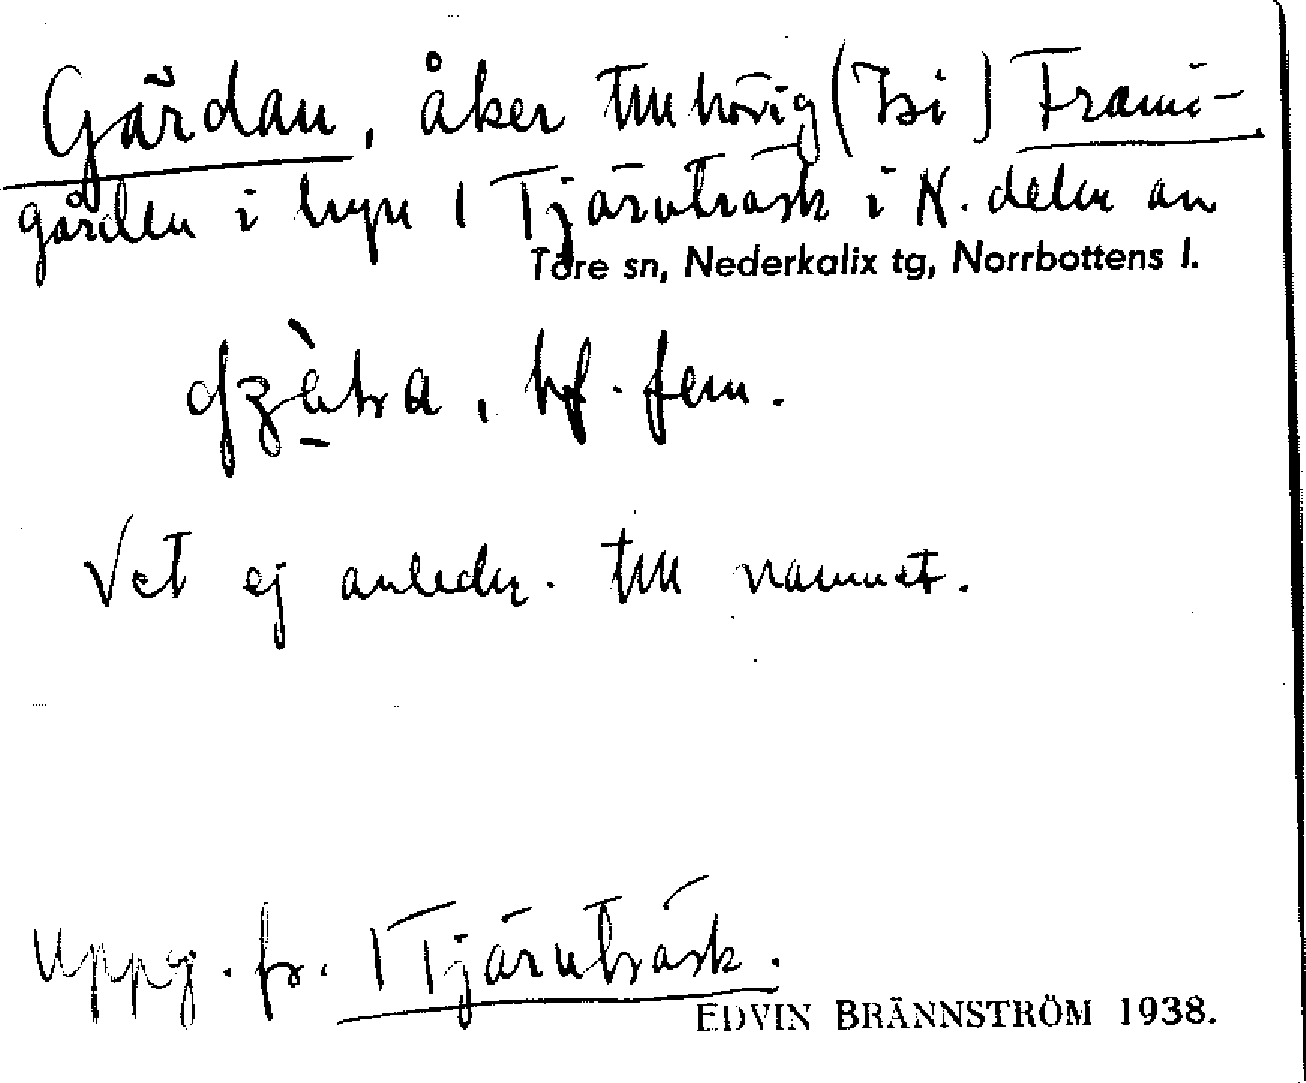 Gärdan, åker tillhörig (Isi) Frami-
gården i byn 1 Tjärnträsk i N. delen av
Töre sn, Nederkalix tg, Norrbottens l.
bf. fem.
Vet ej anledn. till namnet.
Uppg. fr. 1 Tjärnträsk.
EDVIN BRÄNNSTRÖM 1938.